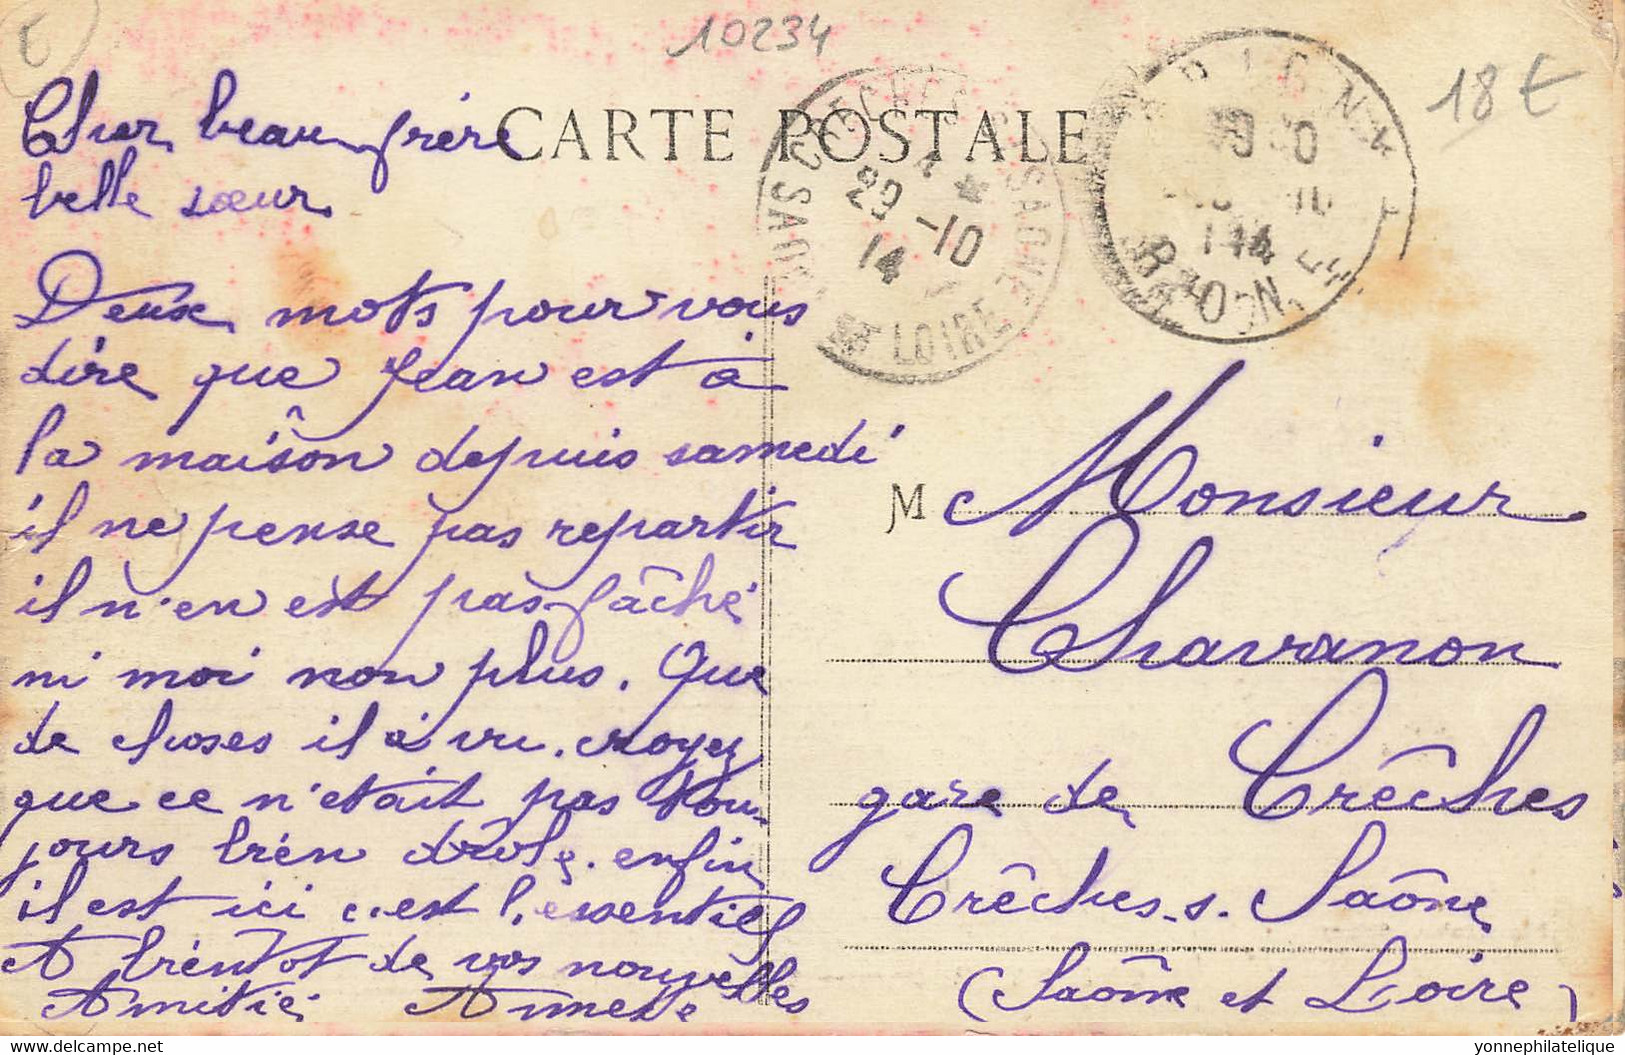 10234
18 €
CARTE POSTALE
CRECHES S SAONE
29 -10
14
SAONE ET LOIRE
Cher beau frère
belle sœur
Deux mots pour vous
dire que Jean est à
la maison depuis samedi
il ne pense pas repartir
il n'en est pas fâché
ni moi non plus. Que
de choses il a vu. croyez
que ce n'était pas tou-
jours bien drôle. enfin
il est ici c'est l'essentiel
A bientôt de vos nouvelles
Amitié
M Monsieur
Chavanon
gare de Crêches
Crêches s. Saône
(Saône et Loire)
yonnephilatelique
www.delcampe.net